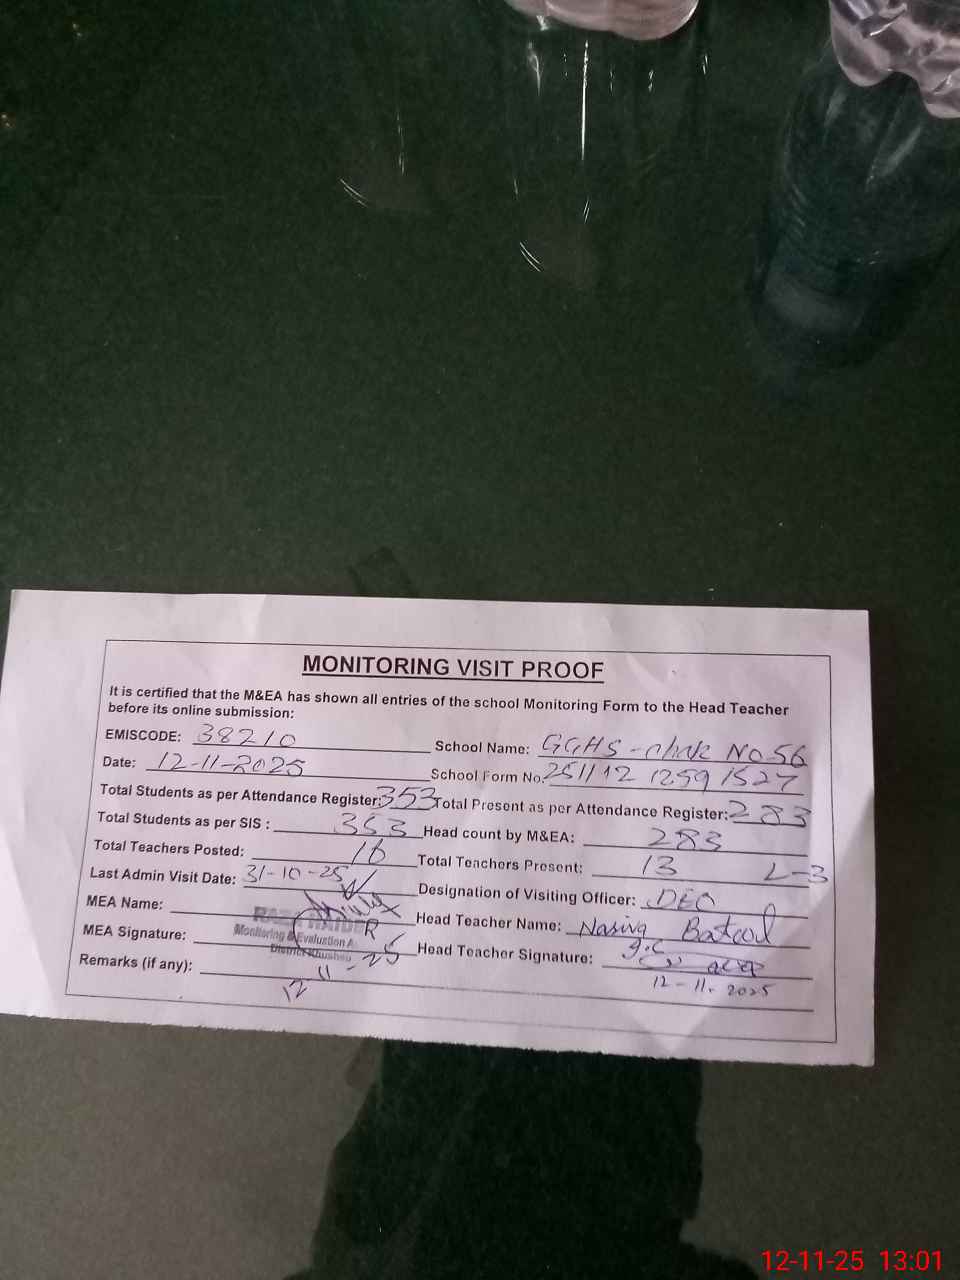 MONITORING VISIT PROOF
It is certified that the M&EA has shown all entries of the school Monitoring Form to the Head Teacher
before its online submission:
EMISCODE: 38210 School Name: GGHS - NO-56
Date: 12-11-2025 School Form No. 251112 1259 1527
Total Students as per Attendance Register: 353 Total Present as per Attendance Register: 283
Total Students as per SIS : 353 Head count by M&EA: 283
Total Teachers Posted: 16 Total Teachers Present: 13 L-3
Last Admin Visit Date: 31-10-25 Designation of Visiting Officer: DEO
MEA Name: Head Teacher Name: Batool
MEA Signature: Monitoring & Evaluation A Head Teacher Signature:
District Khushab
Remarks (if any): 12 11-25 12-11-2025
12-11-25 13:01